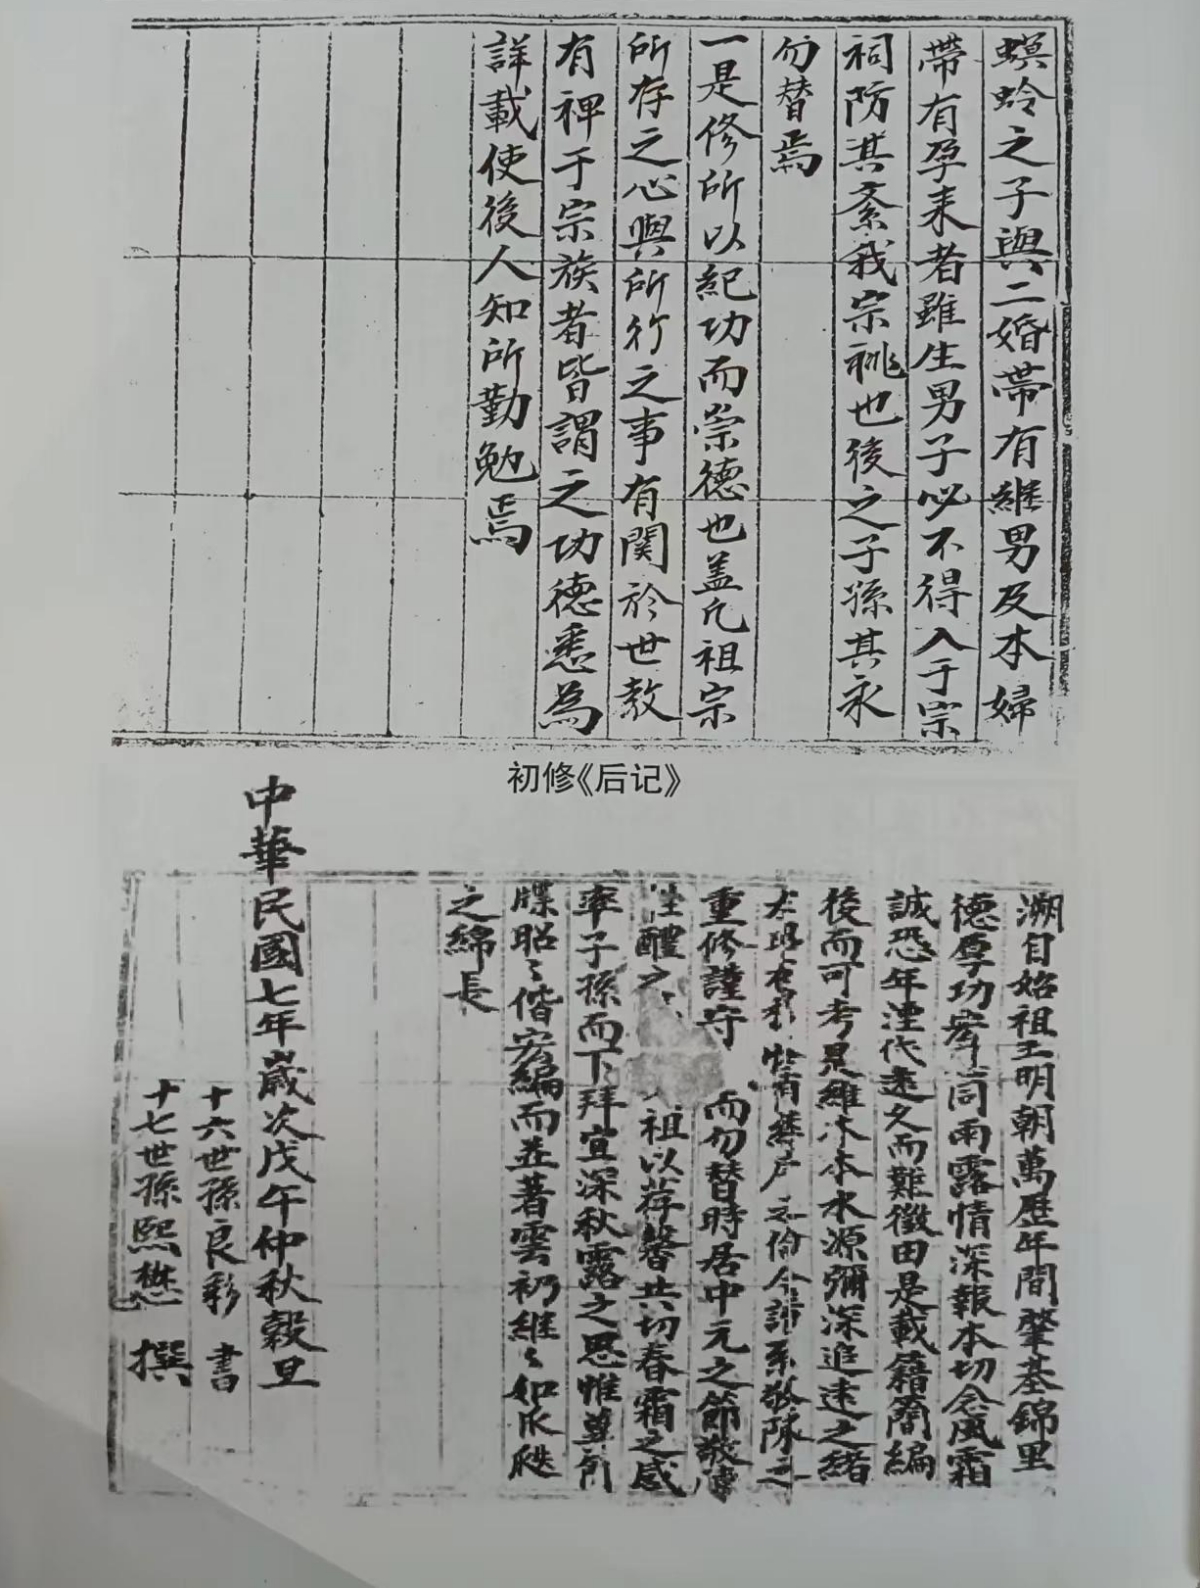 螟蛉之子與二婚帶有繼男及本婦
帶有孕来者雖生男子必不得入于宗
祠防其紊我宗祧也後之子孫其永
勿替焉
一是修所以紀功而崇德也盖凡祖宗
所存之心與所行之事有関於世教
有裨于宗族者皆謂之功德悉為
詳載使後人知所勤勉焉
初修《后记》
溯自始祖王明朝萬歷年間肇基錦里
德厚功宏荷雨露情深報本切念風霜
誠恐年湮代遠久而難徵由是載籍簡編
後而可考是維木本水源彌深追遠之緒
重修謹守 而勿替時居中元之節敬
性醴之 祖以荐馨共切春霜之感
率子孫而下拜宜深秋露之思惟尊
牒昭〻偕宏編而並著雲礽維〻如瓜瓞
之綿長
中華民國七年歲次戊午仲秋穀旦
十六世孫良彩 書
十七世孫熙懋 撰